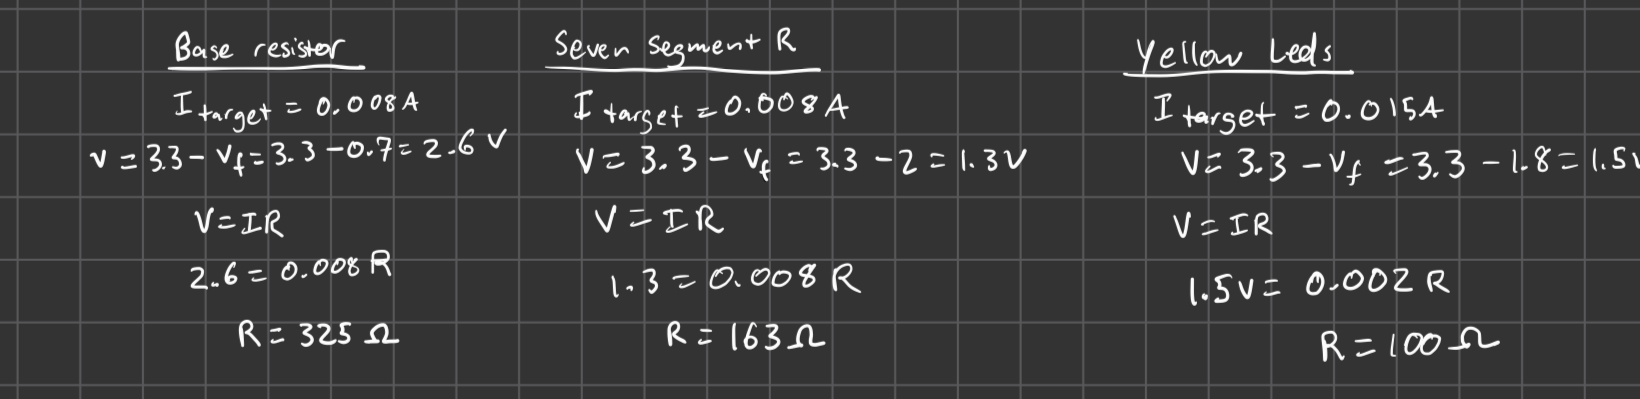 Base resistor
I target = 0.008A
V = 3.3 - Vf = 3.3 - 0.7 = 2.6 V
V = IR
2.6 = 0.008 R
R = 325 Ω
Seven Segment R
I target = 0.008 A
V = 3.3 - Vf = 3.3 - 2 = 1.3V
V = IR
1.3 = 0.008 R
R = 163Ω
Yellow Leds
I target = 0.015A
V = 3.3 - Vf = 3.3 - 1.8 = 1.5V
V = IR
1.5V = 0.002 R
R = 100Ω